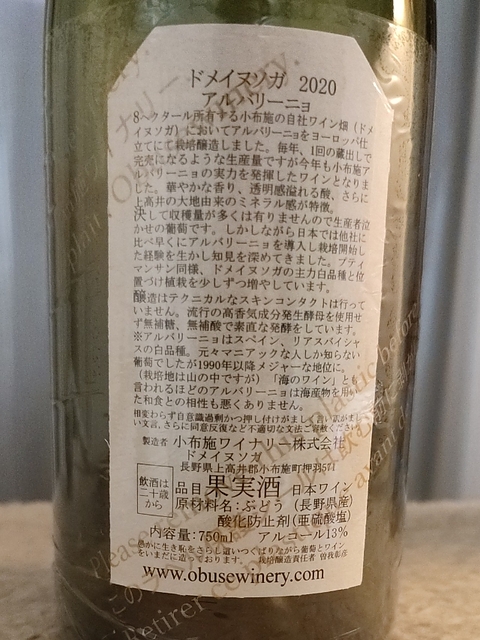 ドメイヌソガ 2020
アルバリーニョ
8ヘクタール所有する小布施の自社ワイン畑（ドメ
イヌソガ）においてアルバリーニョをヨーロッパ仕
立てにて栽培醸造しました。毎年、1回の蔵出しで
完売になるような生産量ですが今年も小布施ア
ルバリーニョの実力を発揮したワインとなりま
した。華やかな香り、透明感溢れる酸、さらに
上高井の大地由来のミネラル感が特徴。
決して収穫量が多くは有りませんので生産者泣
かせの葡萄です。しかしながら日本では他社に
比べ早くにアルバリーニョを導入し栽培開始し
た経験を生かし知見を深めてきました。プティ
マンサン同様、ドメイヌソガの主力白品種と位
置づけ植栽を少しずつ増やしています。
醸造はテクニカルなスキンコンタクトは行って
いません。流行の高香気成分発生酵母を使用せ
ず無補糖、無補酸で素直な発酵をしています。
※アルバリーニョはスペイン、リアスバイシャ
スの白品種。元々マニアックな人しか知らない
葡萄でしたが1990年以降メジャーな地位に。
（栽培地は山の中ですが）「海のワイン」と
言われるほどのアルバリーニョは海産物を用い
た和食との相性も悪くありません。
相変わらず自意識過剰かつ押し付けがましく言い訳がまし
い文言、さらに同意反復など不適切な文法ご容赦ください
製造者 小布施ワイナリー株式会社
ドメイヌソガ
長野県上高井郡小布施町押羽571
飲酒は
二十歳
から
品目 果実酒 日本ワイン
原材料名：ぶどう（長野県産）
酸化防止剤（亜硫酸塩）
内容量：750ml アルコール13%
愚かに生き恥をさらし這いつくばりながら葡萄とワイン
をいまだに造っております。 栽培醸造責任者 曽我彰彦
www.obusewinery.com